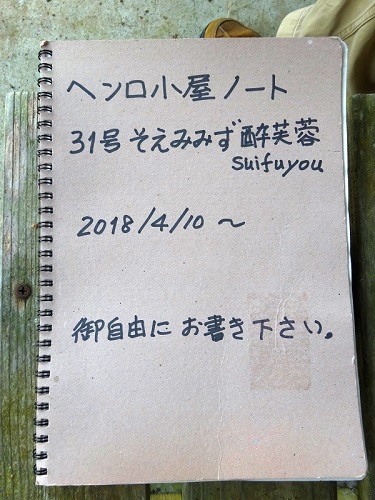 ヘンロ小屋ノート
31号そえみみず酔芙蓉
Suifuyou
2018/4/10～
御自由にお書き下さい。